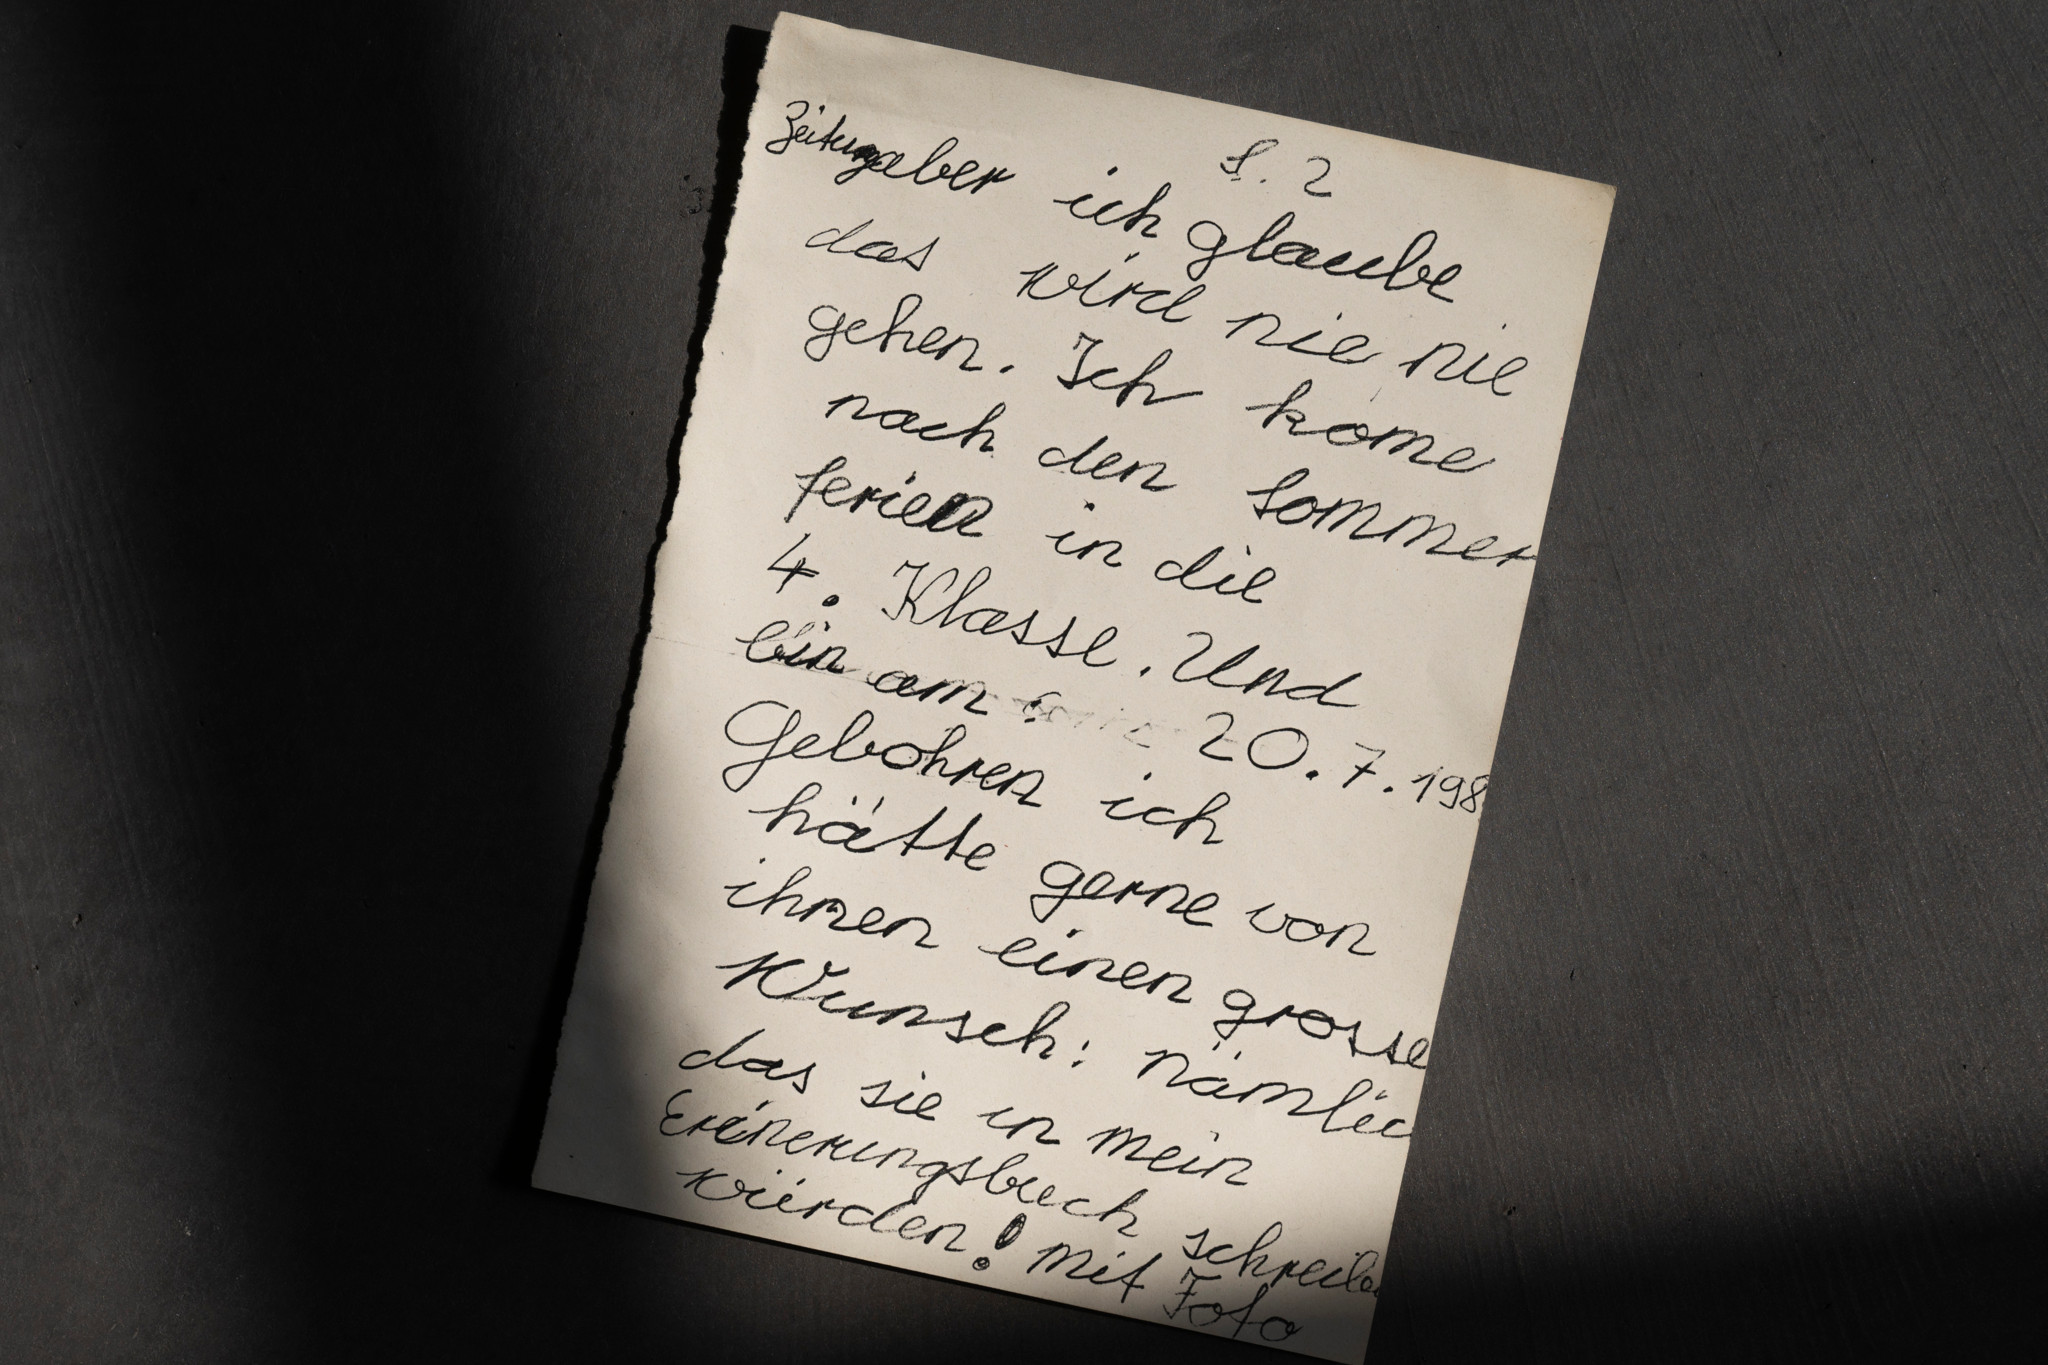 S. 2
Zeitungaber ich glaube
das wird nie nie
gehen. Ich kome
nach den Sommer
ferien in die
4. Klasse. Und
bin am: 20.7.198
Gebohren ich
hätte gerne von
ihnen einen grosse
Wunsch: nämlic
das sie in mein
Erinerungsbuch schreibe
würden! mit Foto